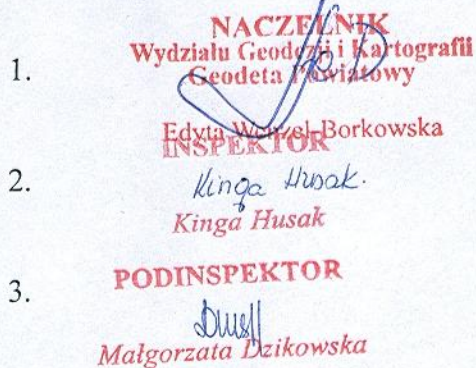 1.
NACZELNIK
Wydziału Geodezji i Kartografii
Geodeta Powiatowy
Edyta Wenzel-Borkowska
2.
INSPEKTOR
Kinga Husak.
Kinga Husak
3.
PODINSPEKTOR
Małgorzata Dzikowska